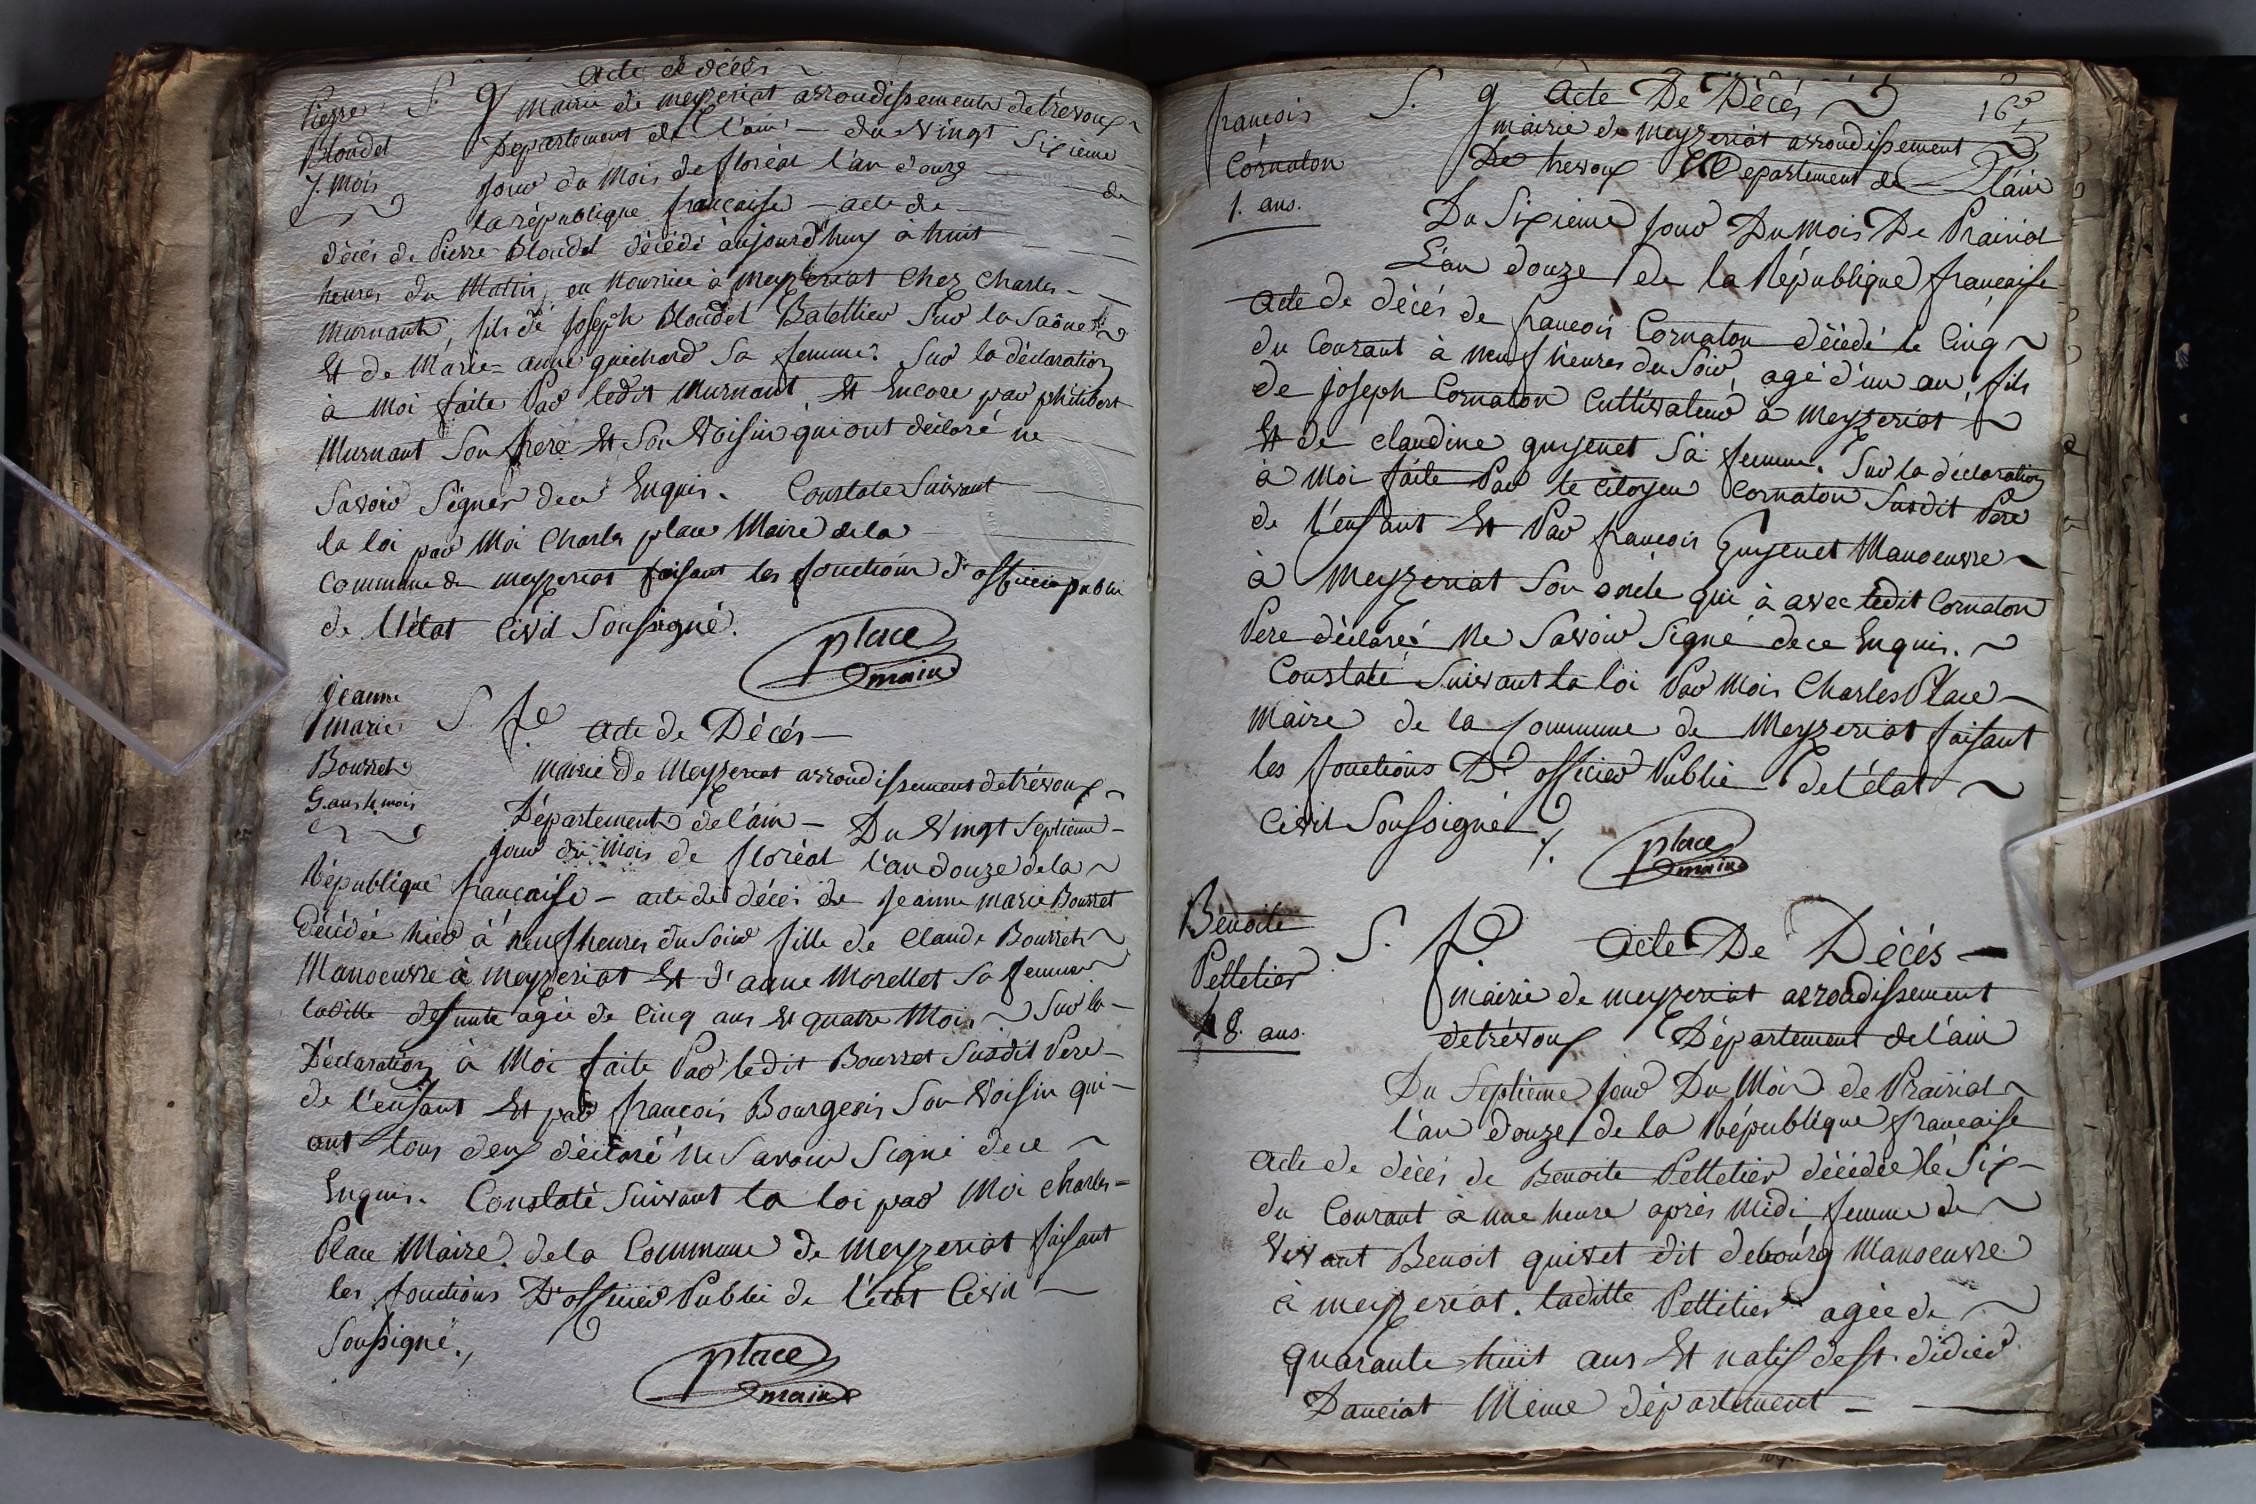 acte de décés
Pierre
Bloudel
7. mois
S. g
mairie de meyzeriat arrondissement de trevoux
Departement de l'ain - du Vingt Sixieme
jour du mois de floréal l'an douze de
la république française - acte de
décés de Pierre Bloudel décédé aujourd'huy à huit
heures du Matin, en nourrice à meyzeriat chez charles
murnant, fils de joseph Bloudel Batellier Sur la Saône
Et de Marie-anne guichard Sa femme. Sur la déclaration
à Moi faite Par ledit Murnant Et Encore par philibert
Murnant Son frere Et Son Voisin qui ont déclaré ne
Savoir Signer dece Enquis. Constaté Suivant
la loi par Moi Charles place Maire de la
commune de meyzeriat faisant les fonctions d'officier public
de l'état Civil Soussigné.
place
maire
jeanne
marie
Bourret
5. ans 4 mois
S. fe
acte de Décés -
Mairie de Meyzeriat arrondissement de trévoux
Département de l'ain - Du Vingt Septieme
jour du Mois de floréal l'an douze de la
République française - acte de décés de jeanne marie Bourret
Décédée hier à neuf heures du Soir fille de Claude Bourret
Manoeuvre à meyzeriat Et d'anne Morellet Sa femme
laditte defunte agée de Cinq ans Et quatre Mois. Sur la
Déclaration à Moi faite Par ledit Bourret Susdit Pere
de l'enfant Et par françois Bourgeois Son Voisin qui
ont tous deux déclaré Ne Savoir Signé dece
Enquis. Constaté Suivant la loi par Moi Charles
Place Maire de la Commune de Meyzeriat faisant
les fonctions D'officier Public de l'état Civil
Soussigné.
place
maire
françois
Cornaton
1. ans.
S. g
Acte De Décés
mairie de meyzeriat arrondissement
De trevoux Departement de L'ain
Du Sixieme jour Du Mois De Prairial
L'an douze de la République française
acte de décés de françois Cornaton décédé le Cinq
du Courant à neuf heures du Soir agé d'un an, fils
de joseph Cornaton Cultivateur à Meyzeriat
Et de claudine guyenet Sa femme. Sur la déclaration
à Moi faite Par le Citoyen Cornaton Susdit Pere
de l'enfant Et Par françois Guyenet Manoeuvre
à Meyzeriat Son oncle qui à avec ledit Cornaton
Pere déclaré Ne Savoir Signé dece Enquis.
Constaté Suivant la loi Par Moi Charles Place
Maire de la Commune de Meyzeriat faisant
les fonctions D'officier Public de l'état
Civil Soussigné
place
maire
Benoite
Pelletier
48. ans.
S. fe
acte De Décés -
mairie de meyzeriat arrondissement
de trévoux Département de l'ain
Du Septieme jour Du Mois de Prairial
l'an douze de la République française
Acte de décés de Benoite Pelletier décédée le Six
du Courant à une heure après Midi femme de
Vivant Benoit quivet dit debourg Manoeuvre
à meyzeriat. laditte Pelletier agée de
quarante huit ans Et natif de st. didier
Danciat Meme département -